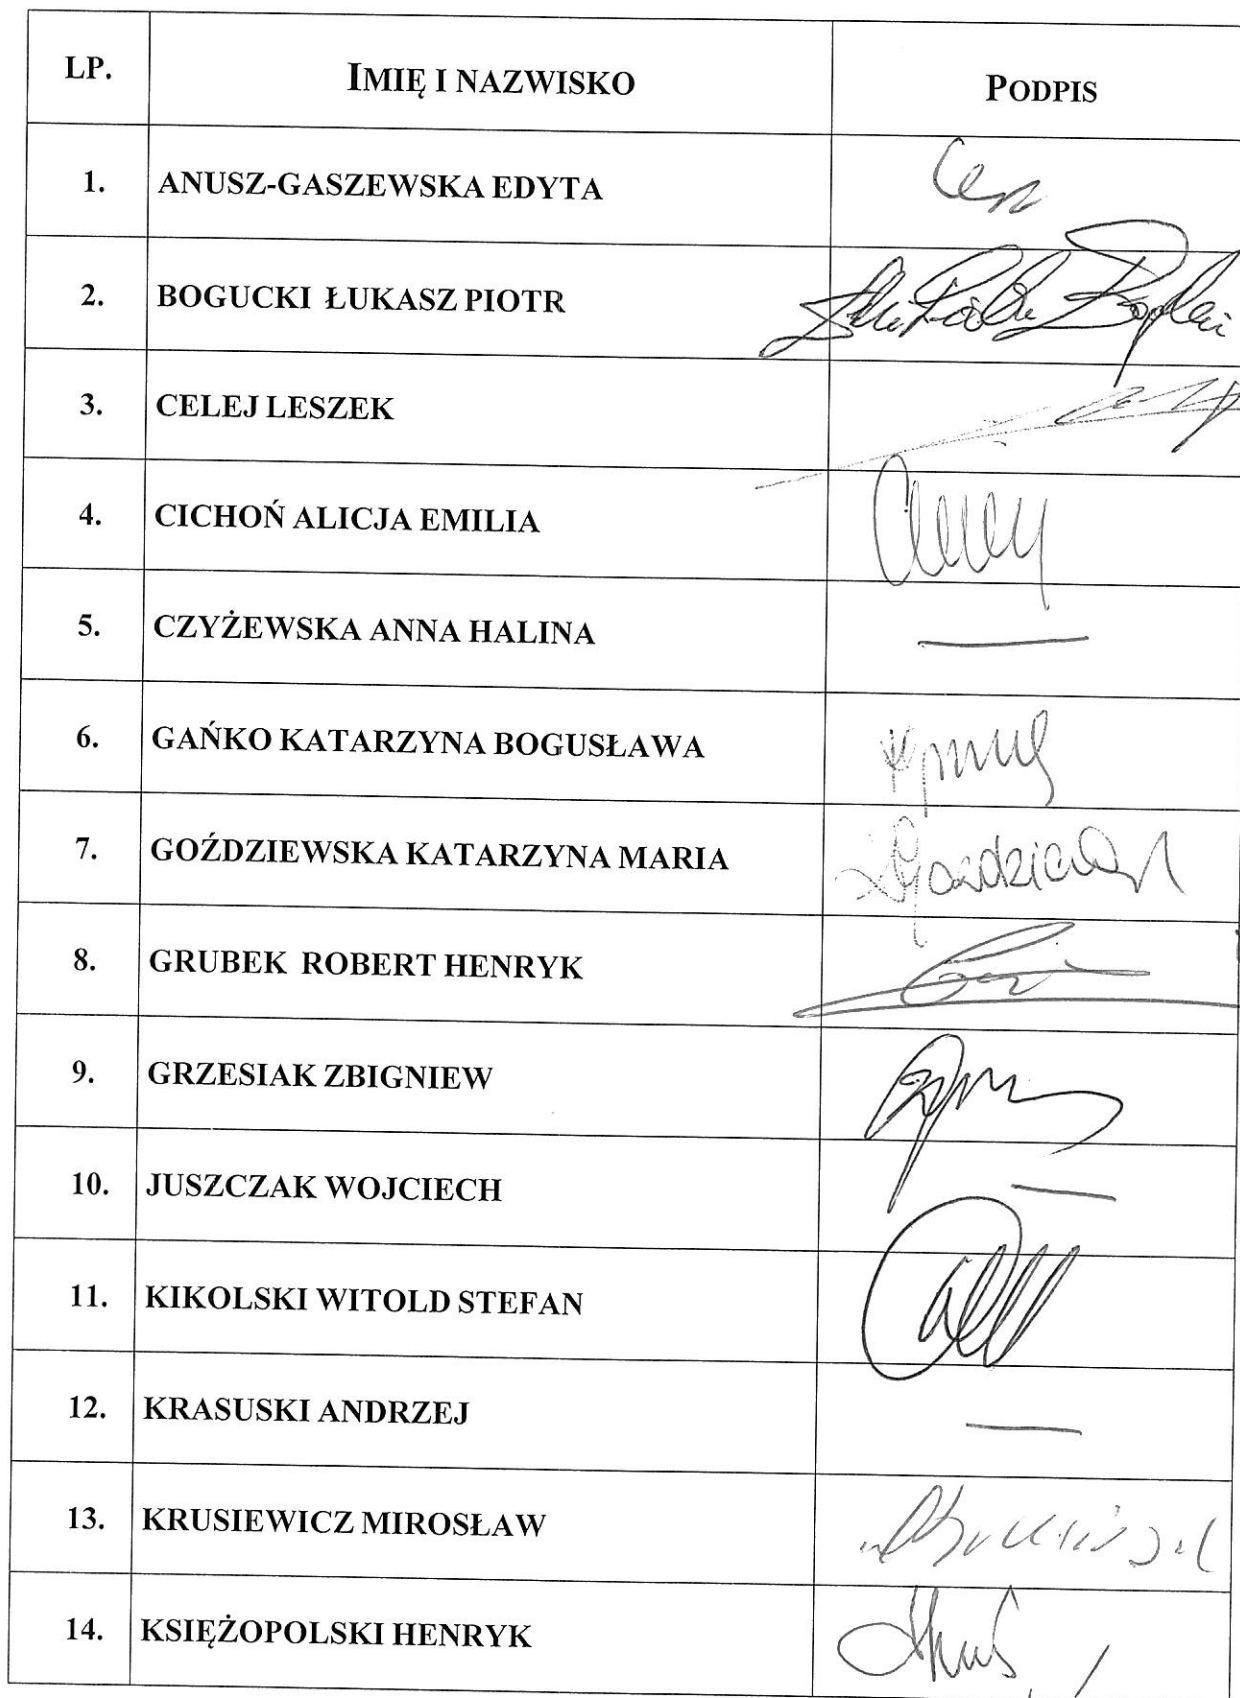 LP. IMIĘ I NAZWISKO PODPIS
1. ANUSZ-GASZEWSKA EDYTA
2. BOGUCKI ŁUKASZ PIOTR
3. CELEJ LESZEK
4. CICHOŃ ALICJA EMILIA
5. CZYŻEWSKA ANNA HALINA —
6. GAŃKO KATARZYNA BOGUSŁAWA
7. GOŹDZIEWSKA KATARZYNA MARIA
8. GRUBEK ROBERT HENRYK
9. GRZESIAK ZBIGNIEW
10. JUSZCZAK WOJCIECH —
11. KIKOLSKI WITOLD STEFAN
12. KRASUSKI ANDRZEJ —
13. KRUSIEWICZ MIROSŁAW
14. KSIĘŻOPOLSKI HENRYK